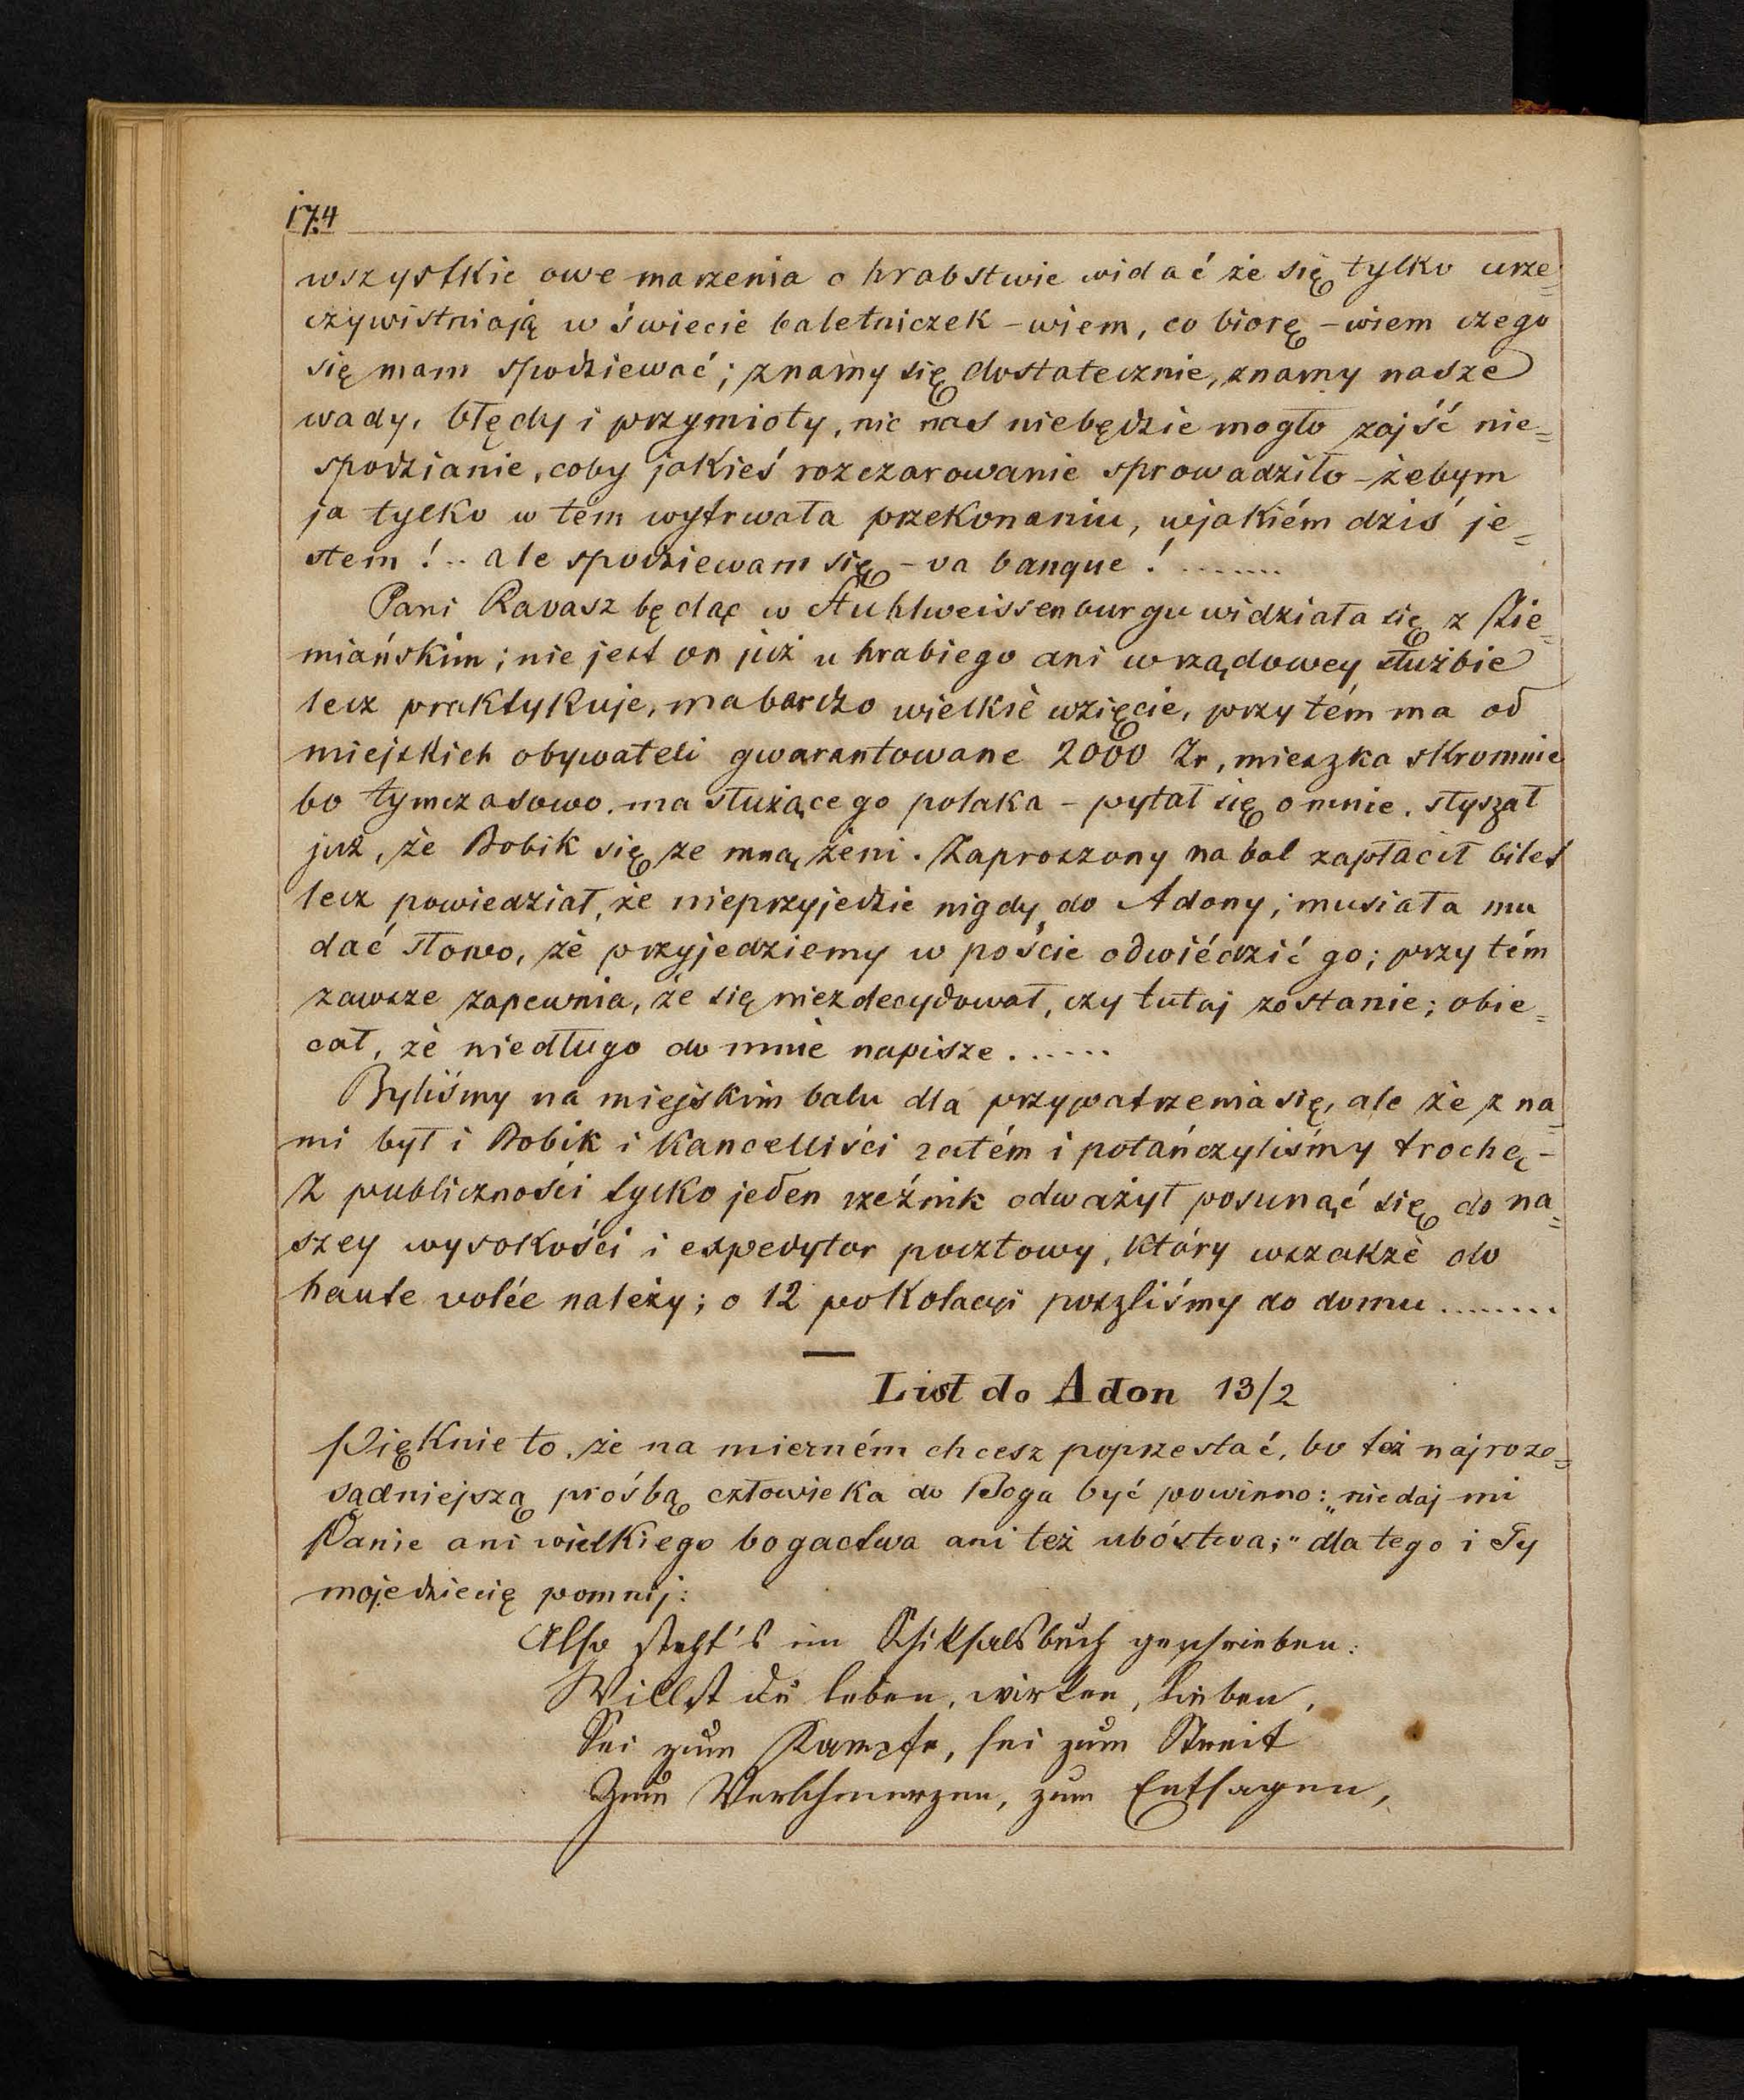 174
wszystkie owe marzenia o hrabstwie widać że się tylko urze=
czywistniają w świecie baletniczek – wiem, co biorę – wiem czego
się mam spodziewać; znamy się dostatecznie, znamy nasze
wady, błędy i przymioty, nic nas niebędzie mogło zajść nie=
spodzianie, coby jakieś rozczarowanie sprowadziło – żebym
ja tylko w tém wytrwała przekonaniu, wjakiém dziś je=
stem! .. ale spodziewam się – va banque! .......
Pani Ravasz będąc w Stuhlweissenburgu widziała się z Zie=
miańskim; nie jest on już u hrabiego ani w rządowey służbie
lecz praktykuje, ma bardzo wielkie wzięcie, przy tém ma od
miejskich obywateli gwarantowane 2000 Zr, mieszka skromnie
bo tymczasowo, ma służącego polaka – pytał się o mnie, słyszał
już, że Bobik się ze mną żeni. Zaproszony na bal zapłacił bilet
lecz powiedział, że nieprzyjedzie nigdy do Adony; musiała mu
dać słowo, że przyjedziemy w poście odwiédzić go; przy tém
zawsze zapewnia, że się niezdecydował, czy tutaj zostanie; obie=
cał, że niedługo do mnie napisze ......
Byliśmy na miejskim balu dla przypatrzenia się, ale że z na=
mi był i Bobik i Kancelliści zatém i potańczyliśmy trochę –
Z publiczności tylko jeden rzeźnik odważył posunąć się do na=
szey wysokości i expedytor pocztowy, który wszakże do
haute volée należy; o 12 po kolacyi poszliśmy do domu ........
List do Adon 13/2
Pięknie to, że na mierném chcesz poprzestać, bo też najroz=
sądniejszą prośbą człowieka do Boga być powinno: „nie daj mi
Panie ani wielkiego bogactwa ani też ubóstwa;" dla tego i Ty
moje dziecię pomnij:
Also steht's im Schiksalsbuch geschrieben:
Willst du leben, wirken, lieben,
Sei zum Kampfe, sei zum Streit
Zum Verschmerzen, zum Entsagen,